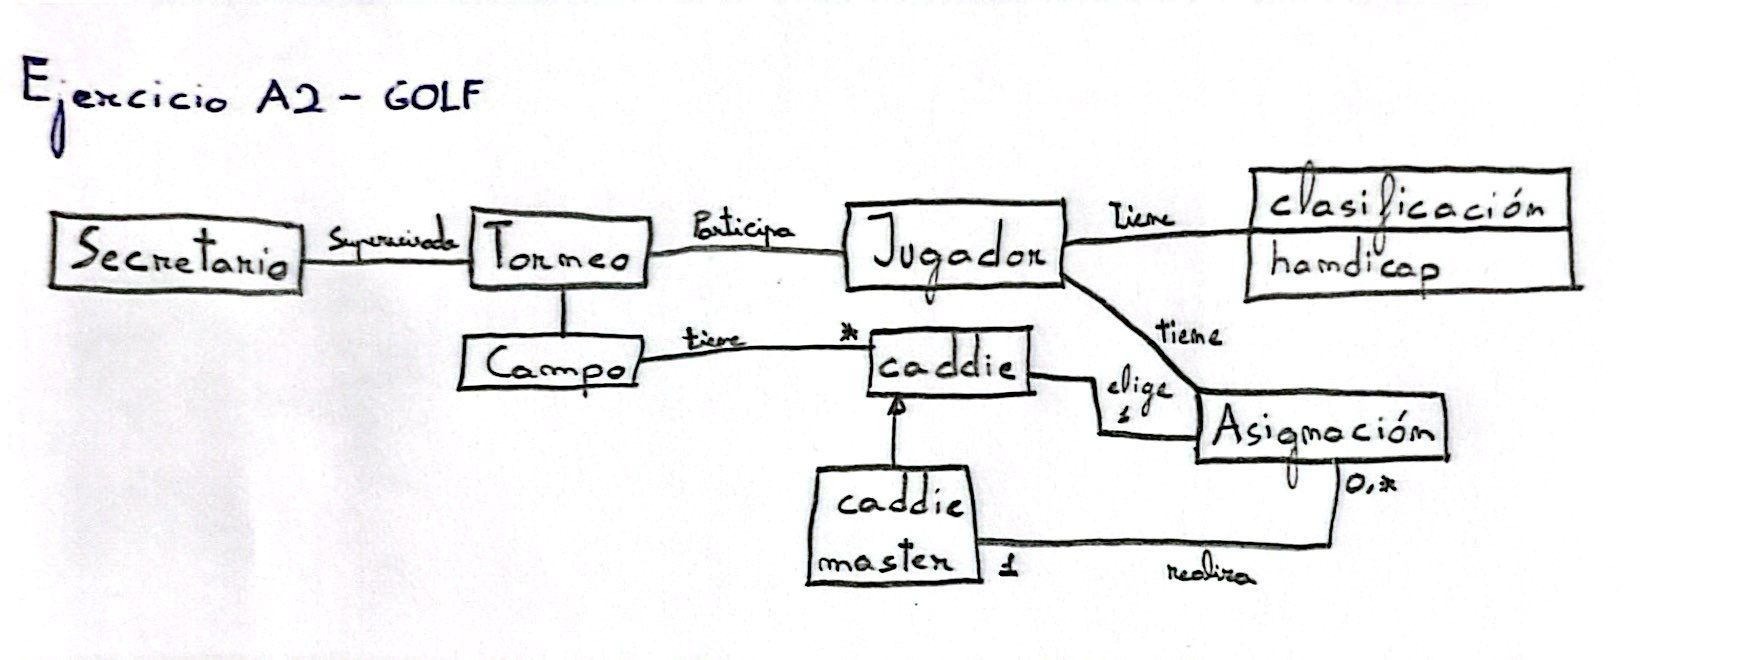 Ejercicio A2 - GOLF
Secretario
Supervisada
Torneo
Participa
Jugador
Tiene
clasificación
handicap
Campo
tiene
*
caddie
tiene
elige
1
Asignación
0,*
caddie
master
1
realiza